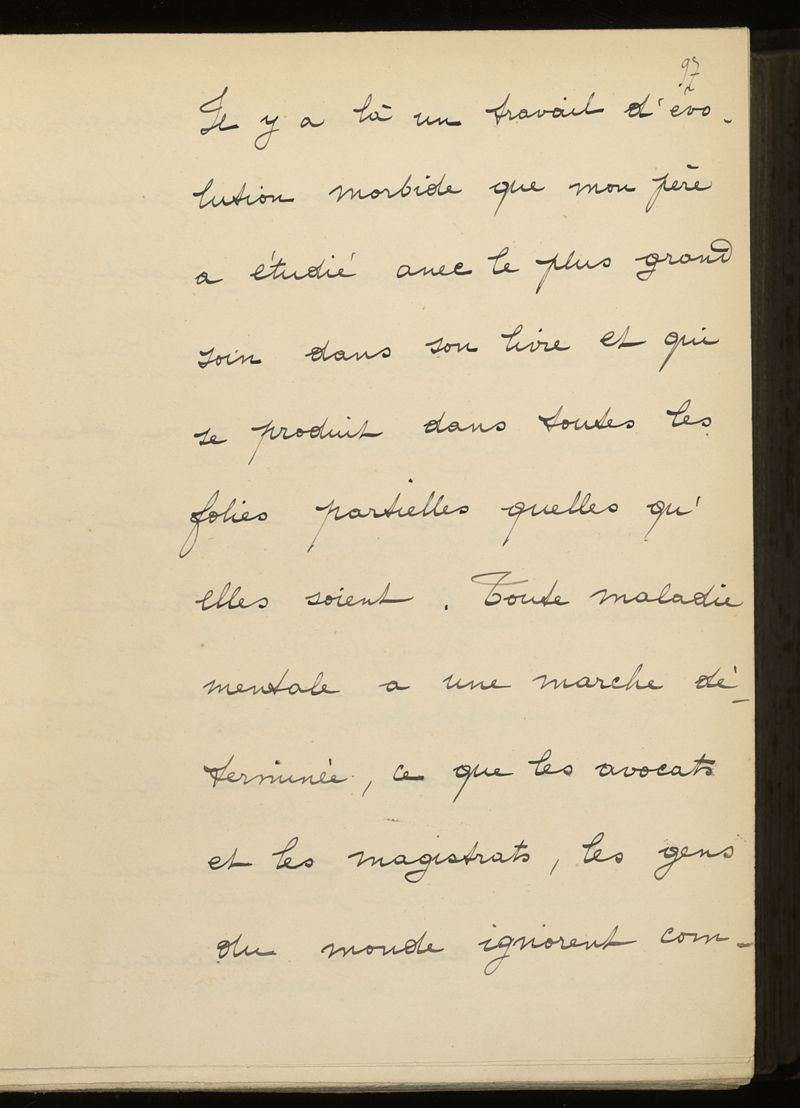 97
Il y a là un travail d'évo-
lution morbide que mon père
a étudié avec le plus grand
soin dans son livre et qui
se produit dans toutes les
folies partielles quelles qu'
elles soient. Toute maladie
mentale a une marche dé-
terminée, ce que les avocats
et les magistrats, les gens
du monde ignorent com-